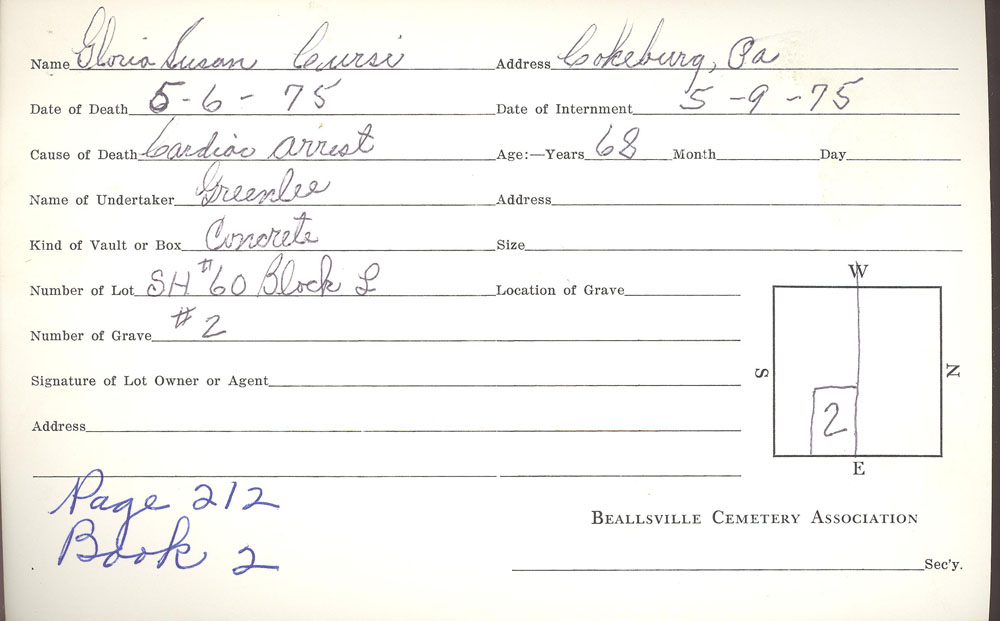 Name Gloria Susan Cursi Address Cokeburg, Pa
Date of Death 5-6-75 Date of Internment 5-9-75
Cause of Death Cardiac arrest Age:—Years 68 Month Day
Name of Undertaker Greenlee Address
Kind of Vault or Box Concrete Size
Number of Lot SH #60 Block L Location of Grave
Number of Grave #2
Signature of Lot Owner or Agent
Address
W
S
N
2
E
Page 212
Book 2
BEALLSVILLE CEMETERY ASSOCIATION
Sec'y.